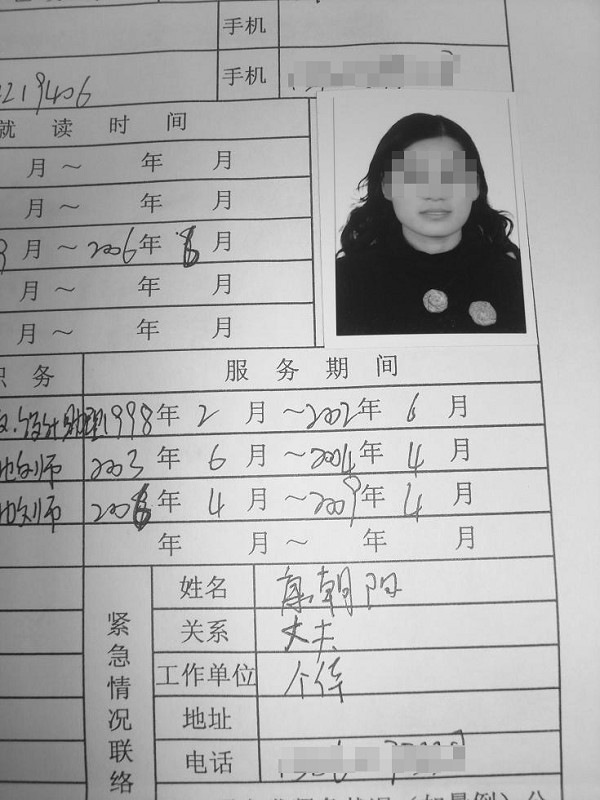 手机
219406 手机
就读时间
月～ 年 月
月～ 年 月
9月～2006年8月
月～ 年 月
月～ 年 月
职务 服务期间
设计助理 1998年2月～2002年6月
师 2003年6月～2004年4月
师 年4月～2009年4月
年 月～ 年 月
紧急情况联络
姓名 朝阳
关系 丈夫
工作单位 个体
地址
电话